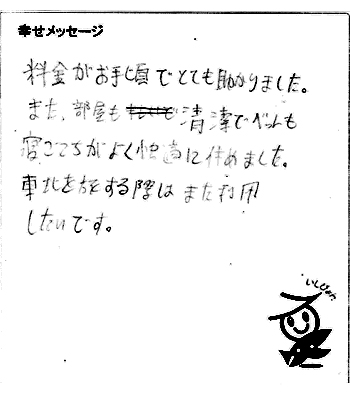 幸せメッセージ
料金がお手頃でとても助かりました。
また、部屋もきれいで清潔でベットも
寝ごこちがよく快適に休めました。
東北を旅する際はまた利用
したいです。